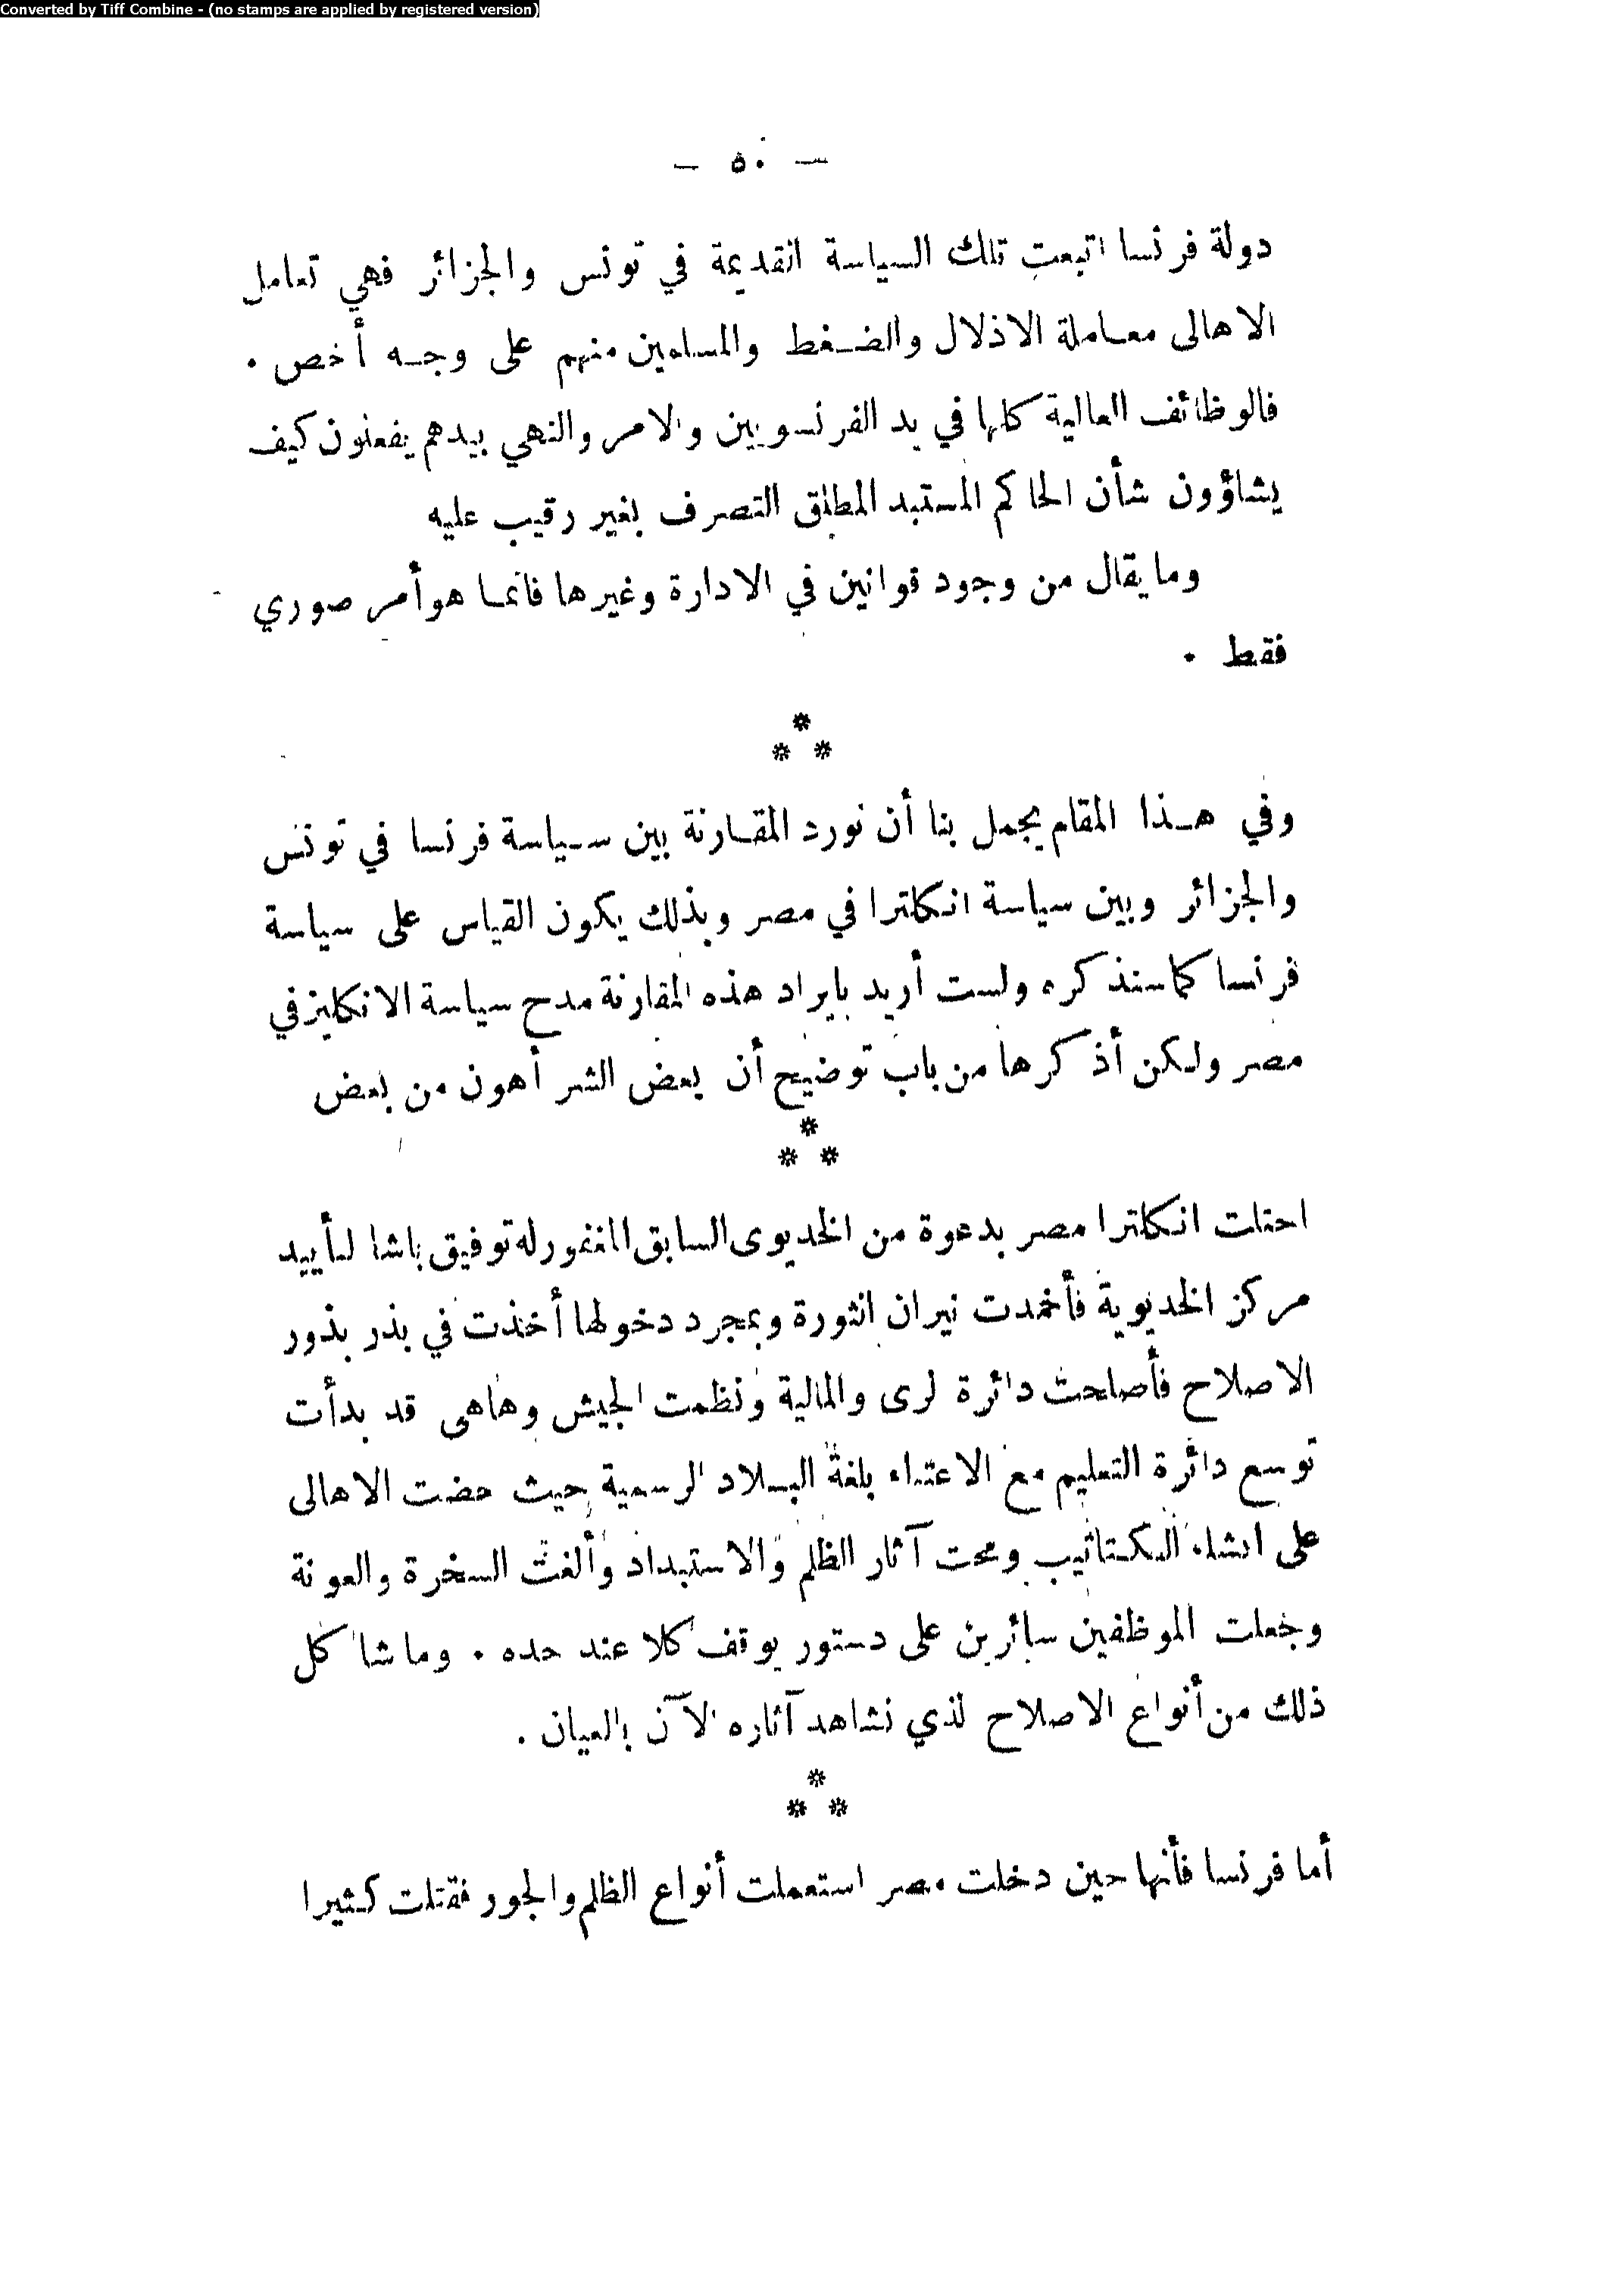 Converted by Tiff Combine - (no stamps are applied by registered version)
— ٥٠ —
دولة فرنسا اتبعت تلك السياسة القديمة في تونس والجزائر فهي تعامل
الاهالى معاملة الاذلال والضغط والمسلمين منهم على وجه أخص .
فالوظائف العالية كلها في يد الفرنسويين والامر والنهي بيدهم يفعلون كيف
يشاؤون شأن الحاكم المستبد المطلق التصرف بغير رقيب عليه
وما يقال من وجود قوانين في الادارة وغيرها فانما هو أمر صوري
فقط .
*
* *
وفي هذا المقام يجمل بنا أن نورد المقارنة بين سياسة فرنسا في تونس
والجزائر وبين سياسة انكلترا في مصر وبذلك يكون القياس على سياسة
فرنسا كما سنذكره ولست أريد بايراد هذه المقارنة مدح سياسة الانكليز في
مصر ولكن أذكرها من باب توضيح أن بعض الشر أهون من بعض
*
* *
احتلت انكلترا مصر بدعوة من الخديوى السابق المغفور له توفيق باشا لتأييد
مركز الخديوية فأخمدت نيران الثورة وبمجرد دخولها أخذت في بذر بذور
الاصلاح فأصلحت دائرة لرى والمالية ونظمت الجيش وهاهى قد بدأت
توسع دائرة التعليم مع الاعتناء بلغة البلاد الرسمية حيث حضت الاهالى
على انشاء الكتاتيب ومحت آثار الظلم والاستبداد وألغت السخرة والعونة
وجعلت الموظفين سائرين على دستور يوقف كلا عند حده . وما شاكل
ذلك من أنواع الاصلاح لذي نشاهد آثاره الآن بالعيان .
*
* *
أما فرنسا فأنها حين دخلت مصر استعملت أنواع الظلم والجور فقتلت كثيرا